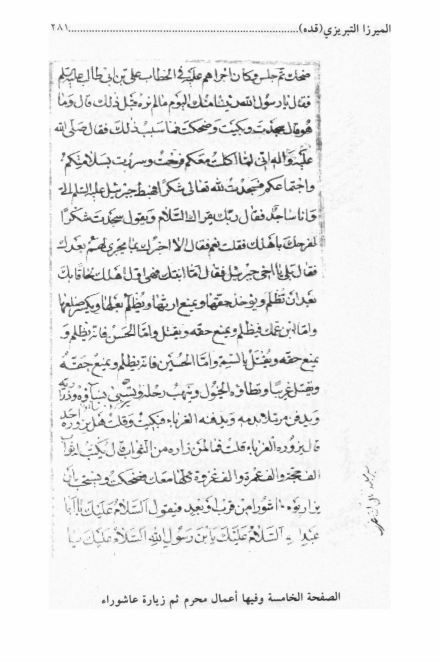 الميرزا التبريزي(قده)......................................................٢٨١
ضحك ثم جلس وكان اجراهم عليه في الخطاب علي بن ابي طالب عليه السلم
فقال يا رسول الله منك اليوم ما لم نره قبل ذلك قال وما
هو قال سجدت وبكيت وضحكت فما سبب ذلك فقال صلى الله
عليه واله اني لما اكلت معكم فرحت وسررت بسلامتكم
واجتماعكم فسجدت لله تعالى شكرا فهبط جبرئيل عليه السلم الي
وانا ساجد فقال ربك يقرأك السلام ويقول سجدت شكرا
لفرحك باهلك فقلت نعم فقال الا اخبرك بما يجري لهم بعدك
فقال بلى يا اخي جبرئيل فقال اما ابنتك فهي اول اهلك لحاقا بك
بعد ان تظلم ويؤخذ حقها ويمنع ارثها ويظلم بعلها ويكسر ضلعها
واما ابن عمك فيظلم ويمنع حقه ويقتل واما الحسن فانه يظلم و
يمنع حقه ويقتل بالسم واما الحسين فانه يظلم ويمنع حقه
ويقتل غريبا وتطاؤه الخيول وينهب رحله وتسبى نساؤه وذراريه
ويدفن مرملا بدمه ويدفنه الغرباء فبكيت وقلت هل يزوره احد
قال يزوره الغرباء قلت فما لمن زاره من الثواب قال يكتب له ثواب
الف حجة والف عمرة والف غزوة كلها معك فضحكت ويستحب ان
يزار يوم عاشورا من قرب او بعد فيقول السلام عليك يا ابا
عبد الله السلام عليك يا بن رسول الله السلام عليك يا
الصفحة الخامسة وفيها أعمال محرم ثم زيارة عاشوراء